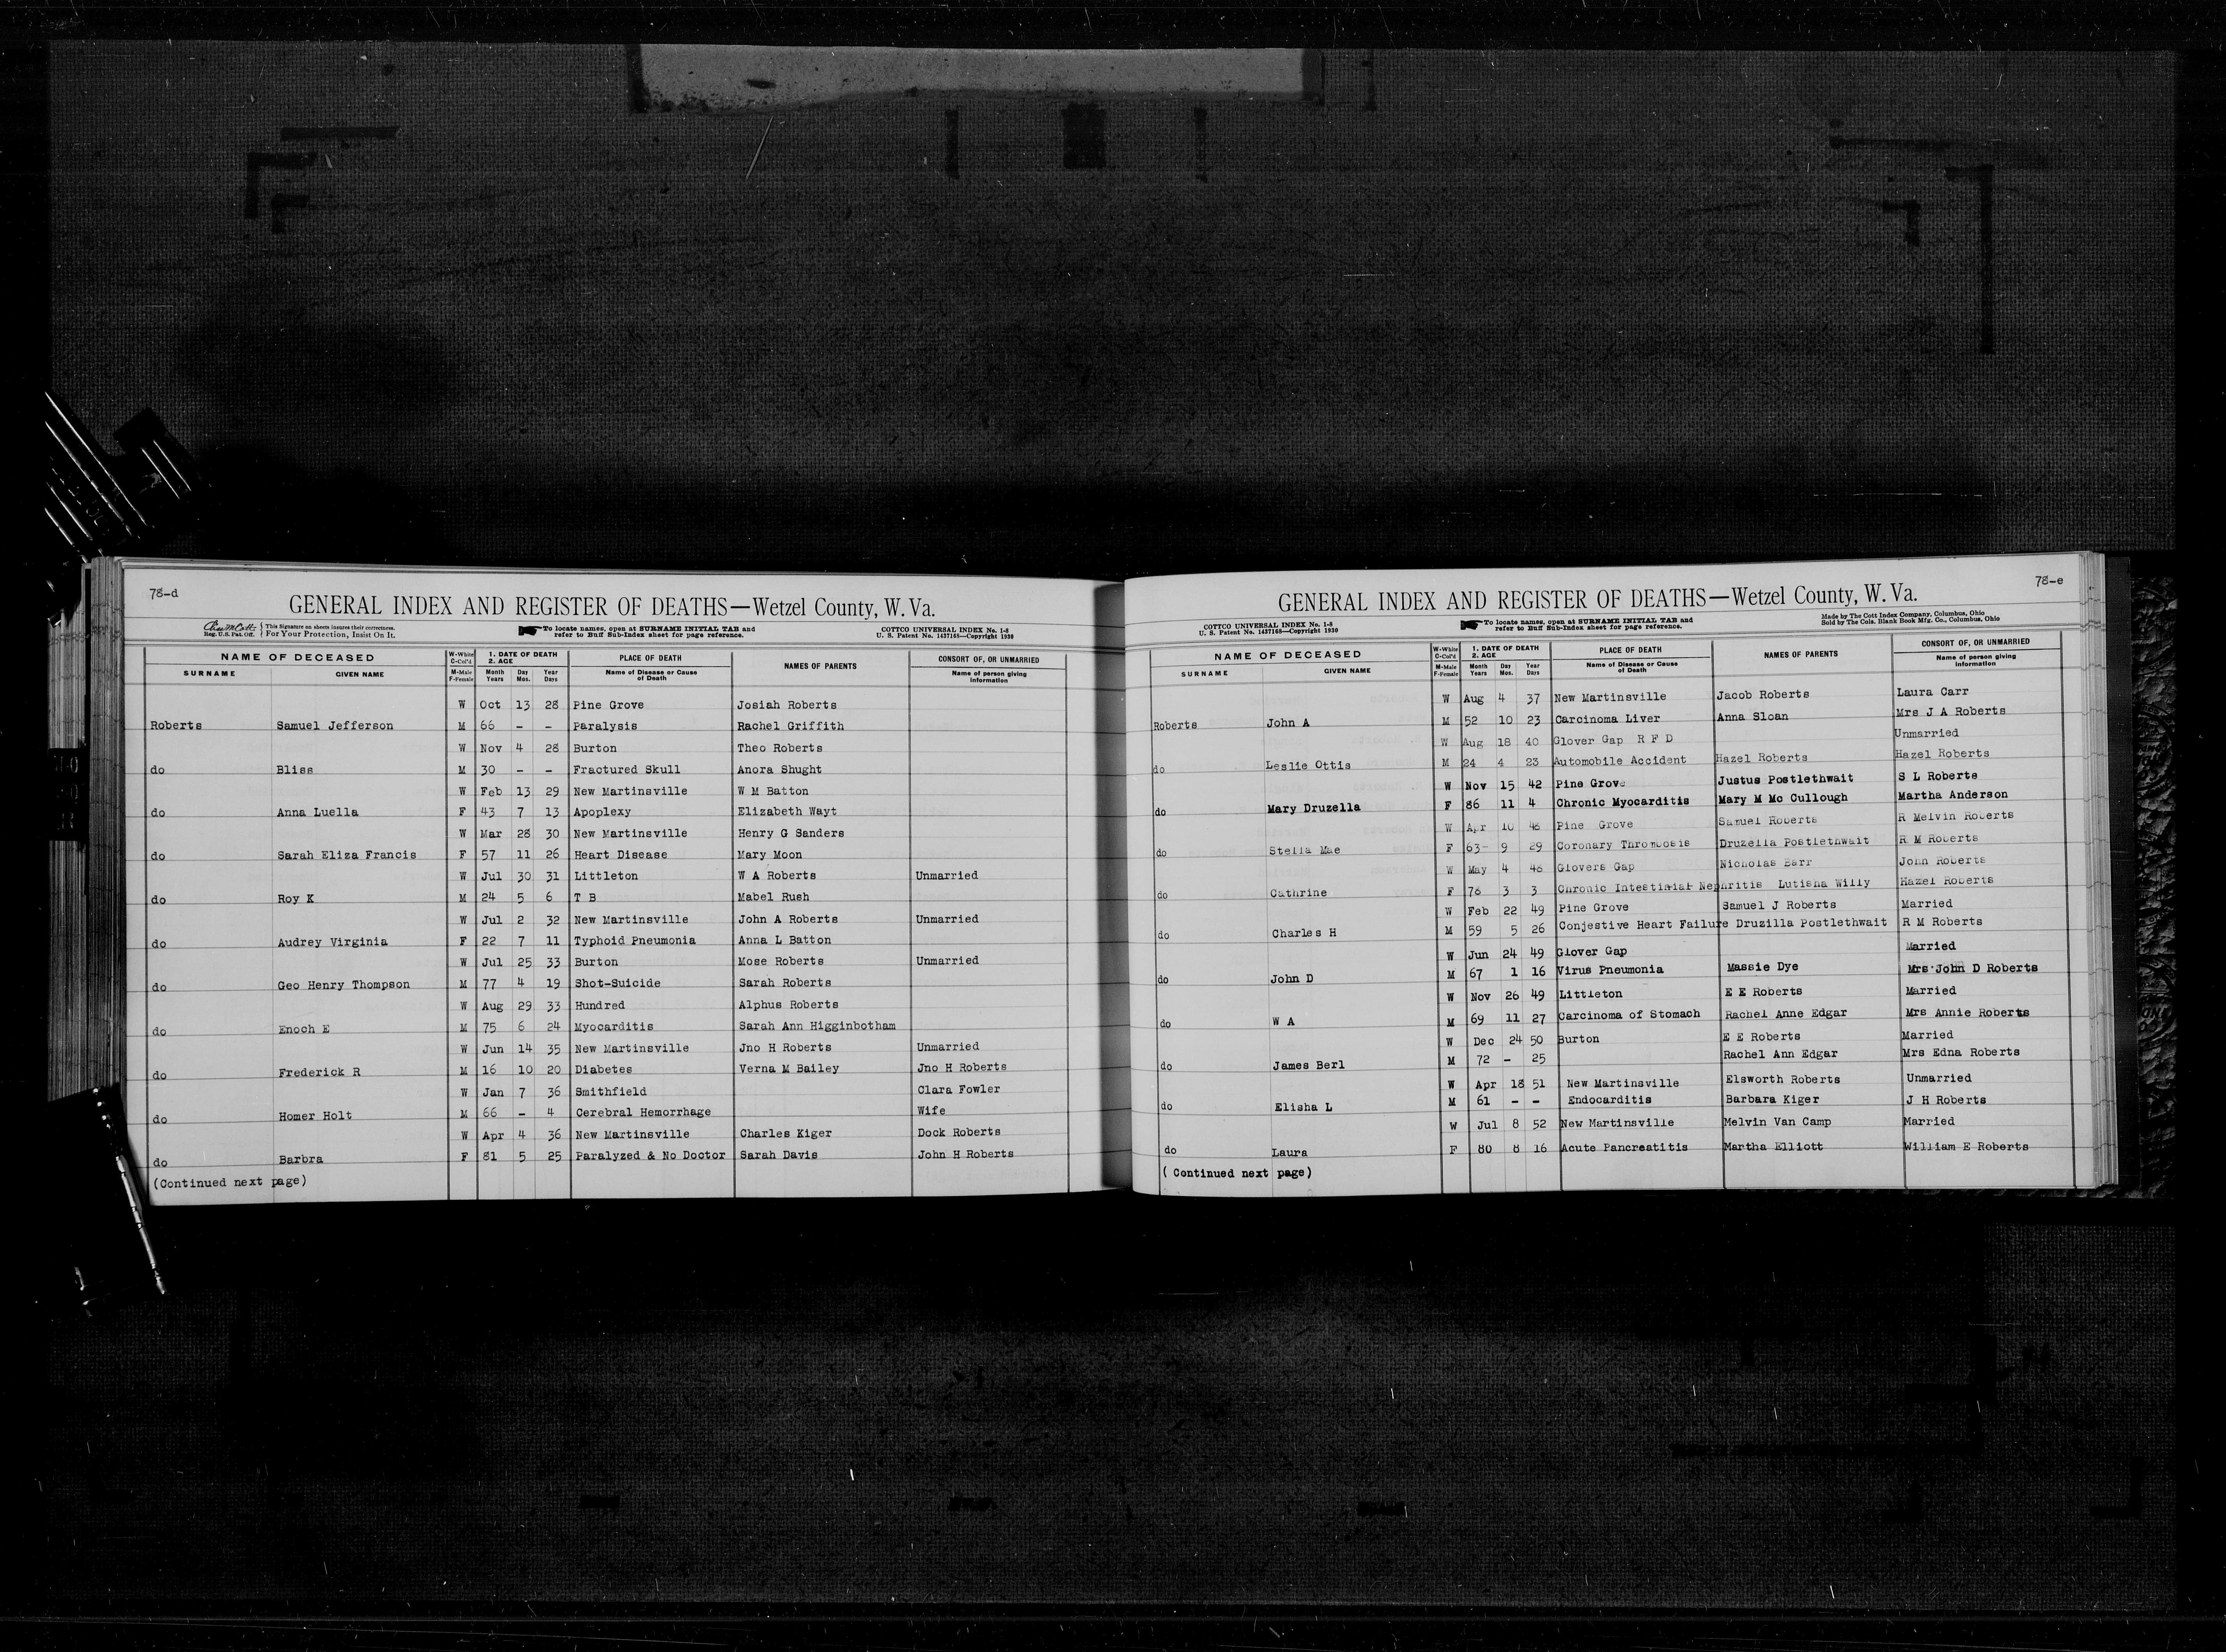 78-d
GENERAL INDEX AND REGISTER OF DEATHS—Wetzel County, W. Va.
Reg. U.S. Pat. Off. { This Signature on sheets insures their correctness. For Your Protection, Insist On It.
To locate names, open at SURNAME INITIAL TAB and refer to Buff Sub-Index sheet for page reference.
COTTCO UNIVERSAL INDEX No. 1-8
U. S. Patent No. 1437168—Copyright 1930
NAME OF DECEASED SURNAME GIVEN NAME W-White C-Col'd M-Male F-Female 1. DATE OF DEATH 2. AGE Month Years Day Mos. Year Days PLACE OF DEATH Name of Disease or Cause of Death NAMES OF PARENTS CONSORT OF, OR UNMARRIED Name of person giving information
W Oct 13 28 Pine Grove Josiah Roberts
Roberts Samuel Jefferson M 66 - - Paralysis Rachel Griffith
W Nov 4 28 Burton Theo Roberts
do Bliss M 30 - - Fractured Skull Anora Shught
W Feb 13 29 New Martinsville W M Batton
do Anna Luella F 43 7 13 Apoplexy Elizabeth Wayt
W Mar 28 30 New Martinsville Henry G Sanders
do Sarah Eliza Francis F 57 11 26 Heart Disease Mary Moon
W Jul 30 31 Littleton W A Roberts Unmarried
do Roy K M 24 5 6 T B Mabel Rush
W Jul 2 32 New Martinsville John A Roberts Unmarried
do Audrey Virginia F 22 7 11 Typhoid Pneumonia Anna L Batton
W Jul 25 33 Burton Mose Roberts Unmarried
do Geo Henry Thompson M 77 4 19 Shot-Suicide Sarah Roberts
W Aug 29 33 Hundred Alphus Roberts
do Enoch E M 75 6 24 Myocarditis Sarah Ann Higginbotham
W Jun 14 35 New Martinsville Jno H Roberts Unmarried
do Frederick R M 16 10 20 Diabetes Verna M Bailey Jno H Roberts
W Jan 7 36 Smithfield Clara Fowler
do Homer Holt M 66 - 4 Cerebral Hemorrhage Wife
W Apr 4 36 New Martinsville Charles Kiger Dock Roberts
do Barbra F 81 5 25 Paralyzed & No Doctor Sarah Davis John H Roberts
(Continued next page)
78-e
GENERAL INDEX AND REGISTER OF DEATHS—Wetzel County, W. Va.
COTTCO UNIVERSAL INDEX No. 1-8
U. S. Patent No. 1437168—Copyright 1930
To locate names, open at SURNAME INITIAL TAB and refer to Buff Sub-Index sheet for page reference.
Made by The Cott Index Company, Columbus, Ohio
Sold by The Cols. Blank Book Mfg. Co., Columbus, Ohio
NAME OF DECEASED SURNAME GIVEN NAME W-White C-Col'd M-Male F-Female 1. DATE OF DEATH 2. AGE Month Years Day Mos. Year Days PLACE OF DEATH Name of Disease or Cause of Death NAMES OF PARENTS CONSORT OF, OR UNMARRIED Name of person giving information
W Aug 4 37 New Martinsville Jacob Roberts Laura Carr
Roberts John A M 52 10 23 Carcinoma Liver Anna Sloan Mrs J A Roberts
W Aug 18 40 Glover Gap R F D Unmarried
do Leslie Ottis M 24 4 23 Automobile Accident Hazel Roberts Hazel Roberts
W Nov 15 42 Pine Grove Justus Postlethwait S L Roberts
do Mary Druzella F 86 11 4 Chronic Myocarditis Mary M Mc Cullough Martha Anderson
W Apr 10 48 Pine Grove Samuel Roberts R Melvin Roberts
do Stella Mae F 63- 9 29 Coronary Thrombosis Druzella Postlethwait R M Roberts
W May 4 48 Glovers Gap Nicholas Barr John Roberts
do Cathrine F 76 3 3 Chronic Intestinal Nephritis Lutisha Willy Hazel Roberts
W Feb 22 49 Pine Grove Samuel J Roberts Married
do Charles H M 59 5 26 Conjestive Heart Failure Druzilla Postlethwait R M Roberts
W Jun 24 49 Glover Gap Married
do John D M 67 1 16 Virus Pneumonia Massie Dye Mrs John D Roberts
W Nov 26 49 Littleton E E Roberts Married
do W A M 69 11 27 Carcinoma of Stomach Rachel Anne Edgar Mrs Annie Roberts
W Dec 24 50 Burton E E Roberts Married
do James Berl M 72 - 25 Rachel Ann Edgar Mrs Edna Roberts
W Apr 18 51 New Martinsville Elsworth Roberts Unmarried
do Elisha L M 61 - - Endocarditis Barbara Kiger J H Roberts
W Jul 8 52 New Martinsville Melvin Van Camp Married
do Laura F 80 8 16 Acute Pancreatitis Martha Elliott William E Roberts
(Continued next page)